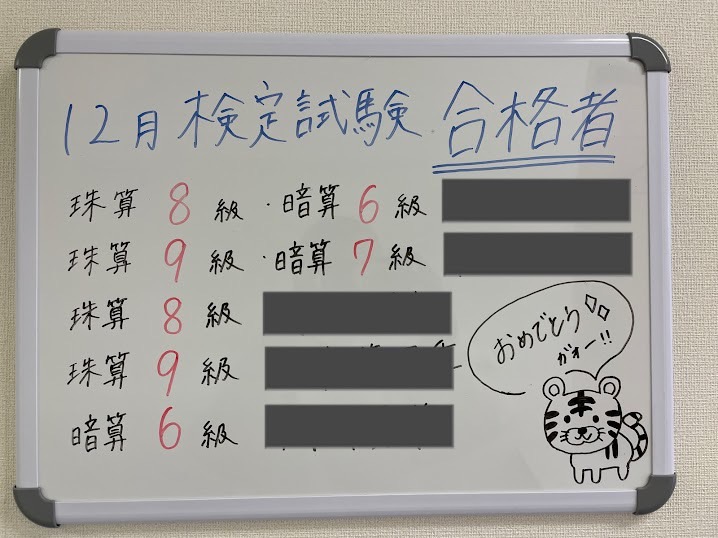 12月 検定試験 合格者
珠算 8 級 ・暗算 6 級
珠算 9 級 ・暗算 7 級
珠算 8 級
珠算 9 級
暗算 6 級
おめでとう
がおー!!